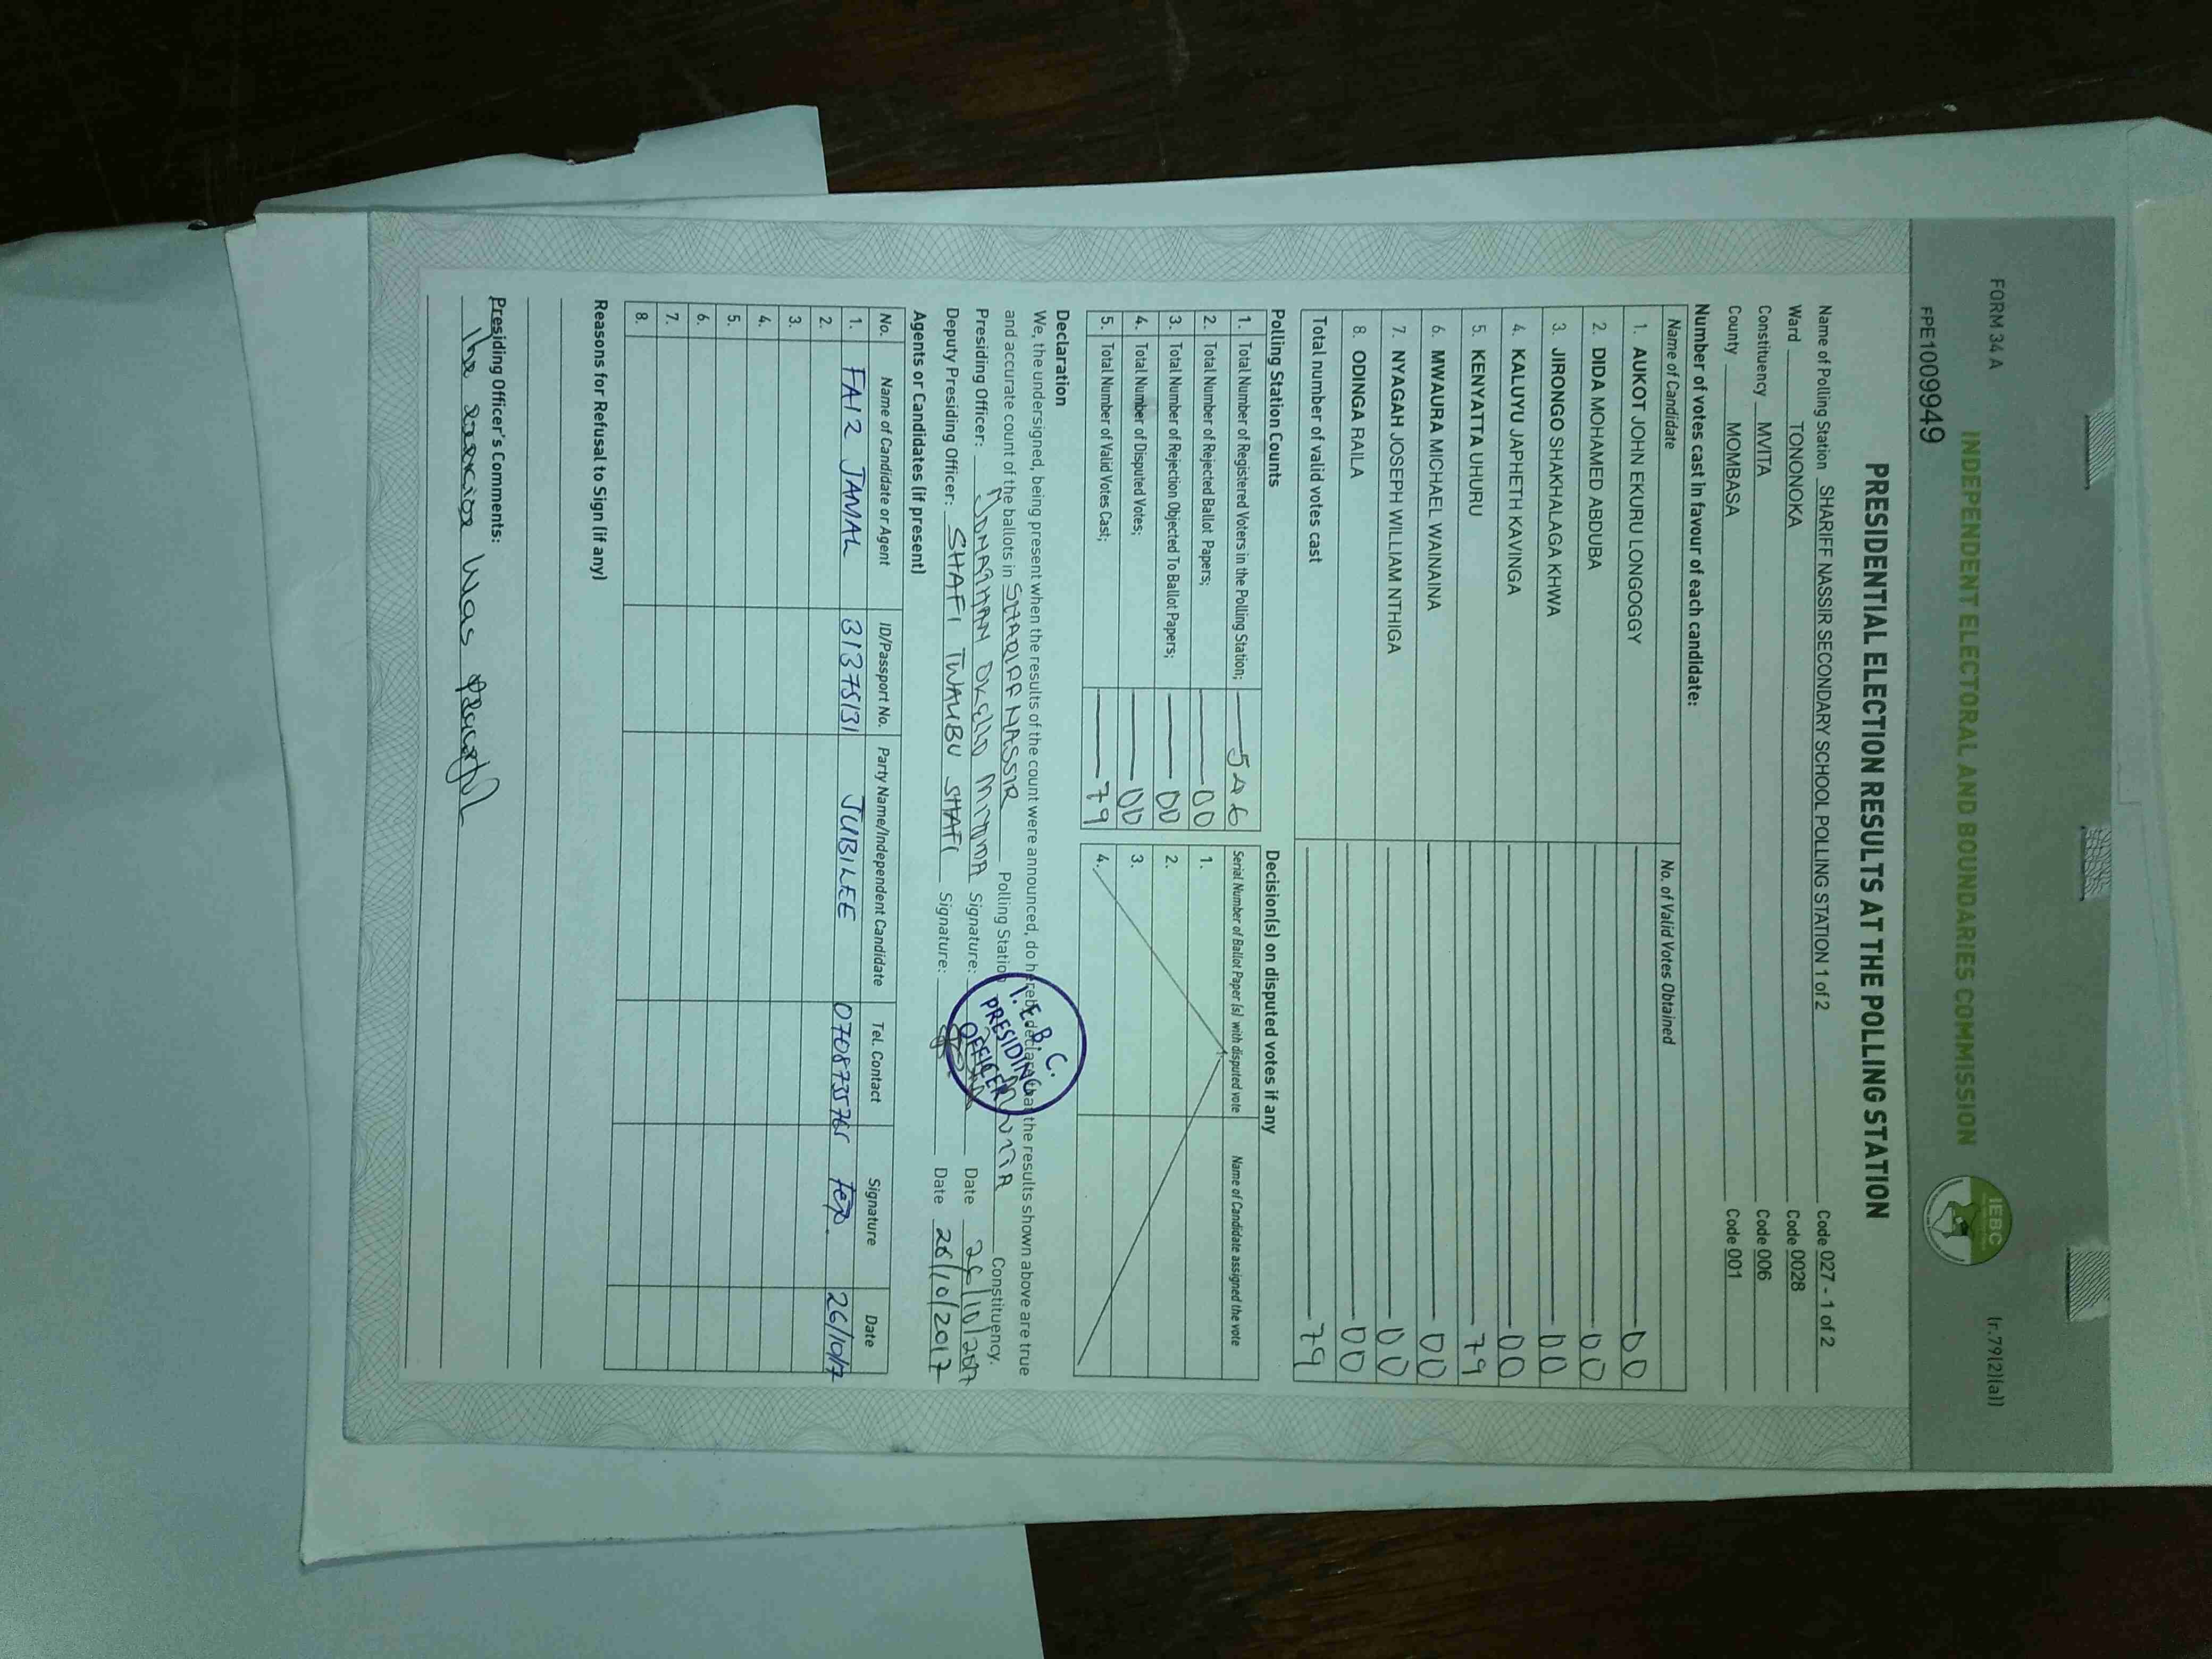 FORM 34 A
(r.79(2)(a))
INDEPENDENT ELECTORAL AND BOUNDARIES COMMISSION
IEBC
FPE1009949
PRESIDENTIAL ELECTION RESULTS AT THE POLLING STATION
Name of Polling Station SHARIFF NASSIR SECONDARY SCHOOL POLLING STATION 1 of 2 Code 027 - 1 of 2
Ward TONONOKA Code 0028
Constituency MVITA Code 006
County MOMBASA Code 001
Number of votes cast in favour of each candidate:
Name of Candidate No. of Valid Votes Obtained
1. AUKOT JOHN EKURU LONGOGGY 00
2. DIDA MOHAMED ABDUBA 00
3. JIRONGO SHAKHALAGA KHWA 00
4. KALUYU JAPHETH KAVINGA 00
5. KENYATTA UHURU 79
6. MWAURA MICHAEL WAINAINA 00
7. NYAGAH JOSEPH WILLIAM NTHIGA 00
8. ODINGA RAILA 00
Total number of valid votes cast 79
Polling Station Counts
1. Total Number of Registered Voters in the Polling Station; 546
2. Total Number of Rejected Ballot Papers; 00
3. Total Number of Rejection Objected To Ballot Papers; 00
4. Total Number of Disputed Votes; 00
5. Total Number of Valid Votes Cast; 79
Decision(s) on disputed votes if any
Serial Number of Ballot Paper (s) with disputed vote Name of Candidate assigned the vote
1.
2.
3.
4.
Declaration
We, the undersigned, being present when the results of the count were announced, do hereby declare that the results shown above are true
and accurate count of the ballots in SHARIFF NASSIR Polling Station MVITA Constituency.
Presiding Officer: JONATHAN OKELLO Signature: Date 26/10/2017
Deputy Presiding Officer: SHAFI TWAHBU SHAFI Signature: Date 26/10/2017
I.E.B.C.
PRESIDING
OFFICER
Agents or Candidates (if present)
No. Name of Candidate or Agent ID/Passport No. Party Name/Independent Candidate Tel. Contact Signature Date
1. FAIZ JAMAL 31375131 JUBILEE 26/10/17
2.
3.
4.
5.
6.
7.
8.
Reasons for Refusal to Sign (if any)
Presiding Officer's Comments:
The exercise was peaceful